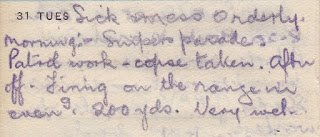 31 TUES Sick mess Orderly.
morning. Snipers parades
Patrol work - copse taken. After
off. Firing on the range in
eveng. 200 yds. Very wet.